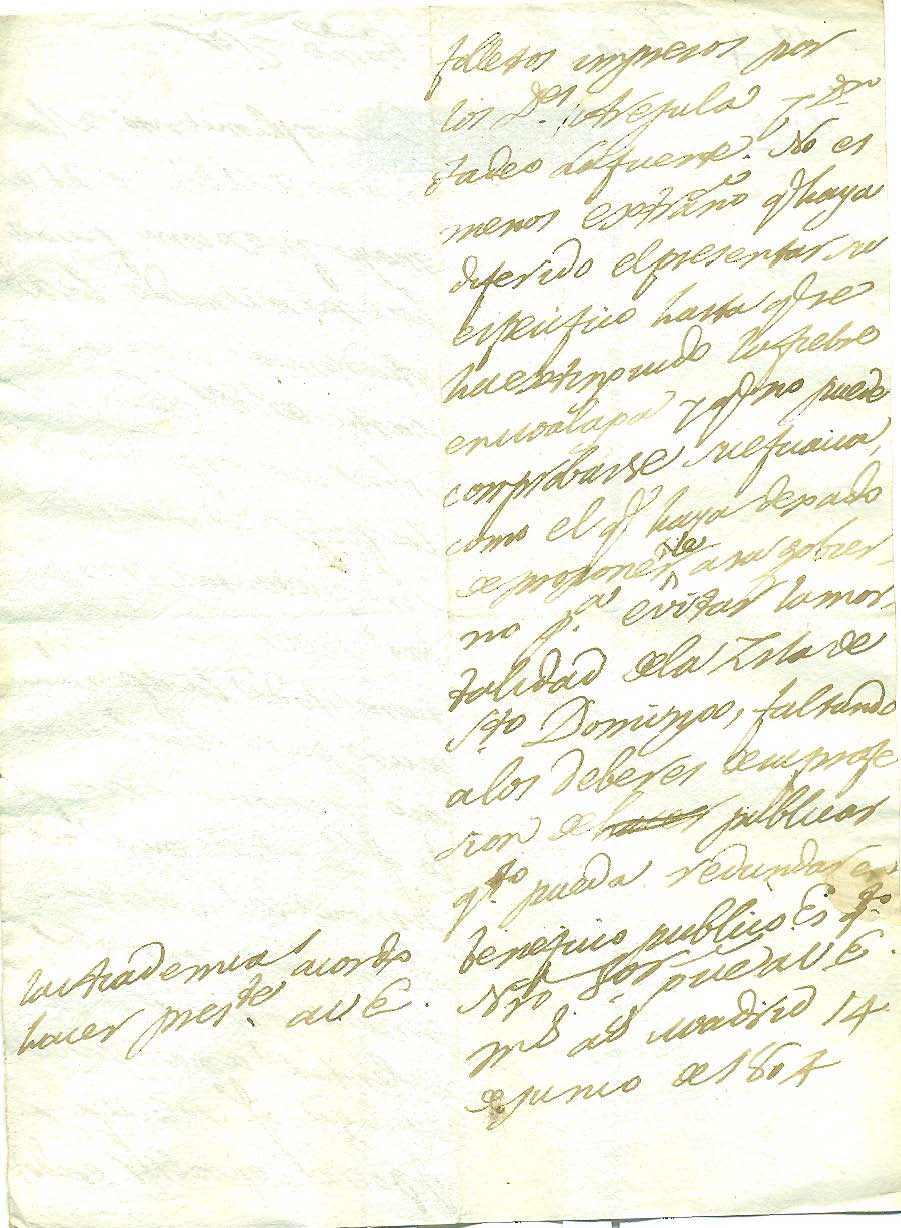 folletos impresos por
los D.res Arejula, y Dn
tadeo Lafuente. No es
menos extraño qe haya
diferido el presentar su
especifico hasta qe se
ha extinguido la fiebre
en Malaga y qe no puede
comprobarse su eficacia,
como el qe haya dexado
de proponerle a su gobier
no p.a evitar la mor-
talidad de la Isla de
Sto Domingo, faltando
a los deberes de su profe
sion de hacer publicar
q.to pueda redundar en
beneficio publico. Es q.to
la Academia acordo
hacer preste a V E.
Nro Sor gue a V E.
ms as Madrid 14
de junio de 1804